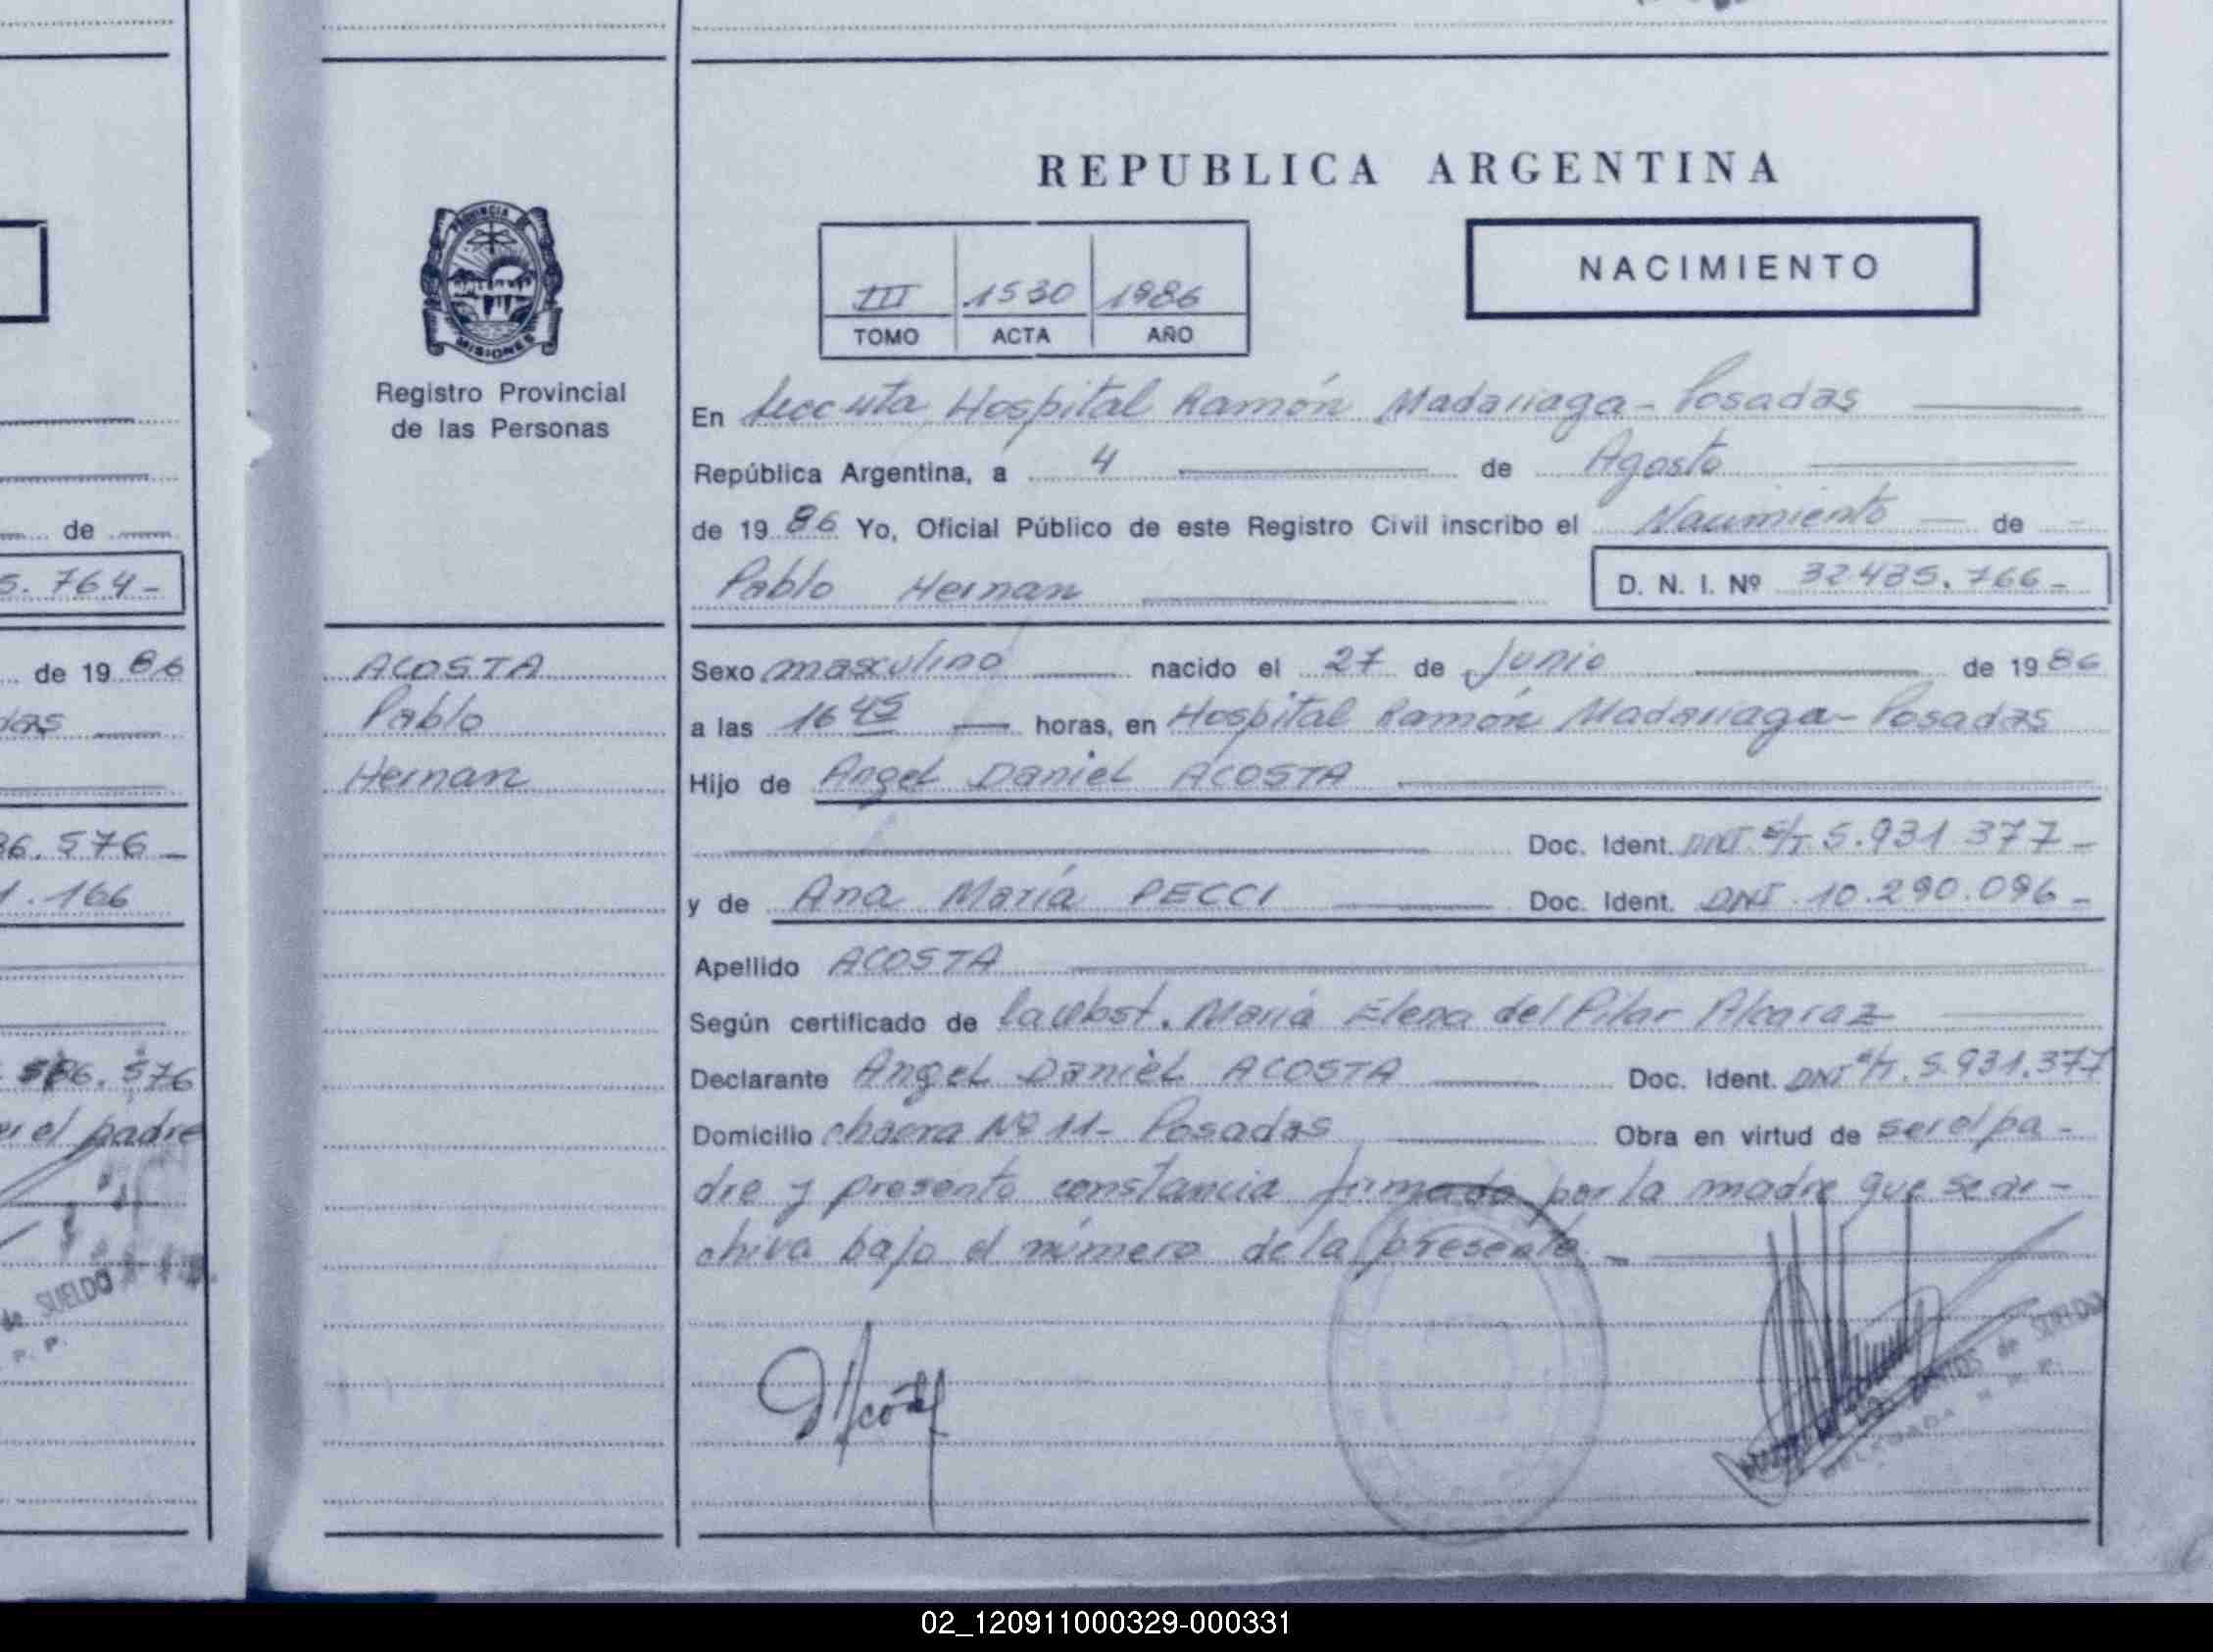 REPUBLICA ARGENTINA
PROVINCIA DE
MISIONES
Registro Provincial
de las Personas
III 1530 1986
TOMO ACTA AÑO
NACIMIENTO
En Seccuta Hospital Ramón Madariaga - Posadas
República Argentina, a 4 de Agosto
de 1986 Yo, Oficial Público de este Registro Civil inscribo el Nacimiento de
Pablo Hernan
D. N. I. Nº 32.435.766-
ACOSTA
Pablo
Hernan
Sexo masculino nacido el 27 de Junio de 1986
a las 16 45 horas, en Hospital Ramón Madariaga - Posadas
Hijo de Angel Daniel ACOSTA
Doc. Ident. DNI. S/T 5.931 377-
y de Ana María PECCI Doc. Ident. DNI. 10.290.096-
Apellido ACOSTA
Según certificado de la Obst. María Elena del Pilar Alcaraz
Declarante Angel Daniel ACOSTA Doc. Ident. DNI S/T. 5.931.377
Domicilio chacra Nº 11- Posadas Obra en virtud de ser el pa-
dre y presento constancia firmada por la madre que se ar-
chiva bajo el número de la presente.-
de SUELDO
de
5.764-
de 19 86
das
86.576-
1.166
.576
el padre
de SUELDO
P. P.
02_120911000329-000331